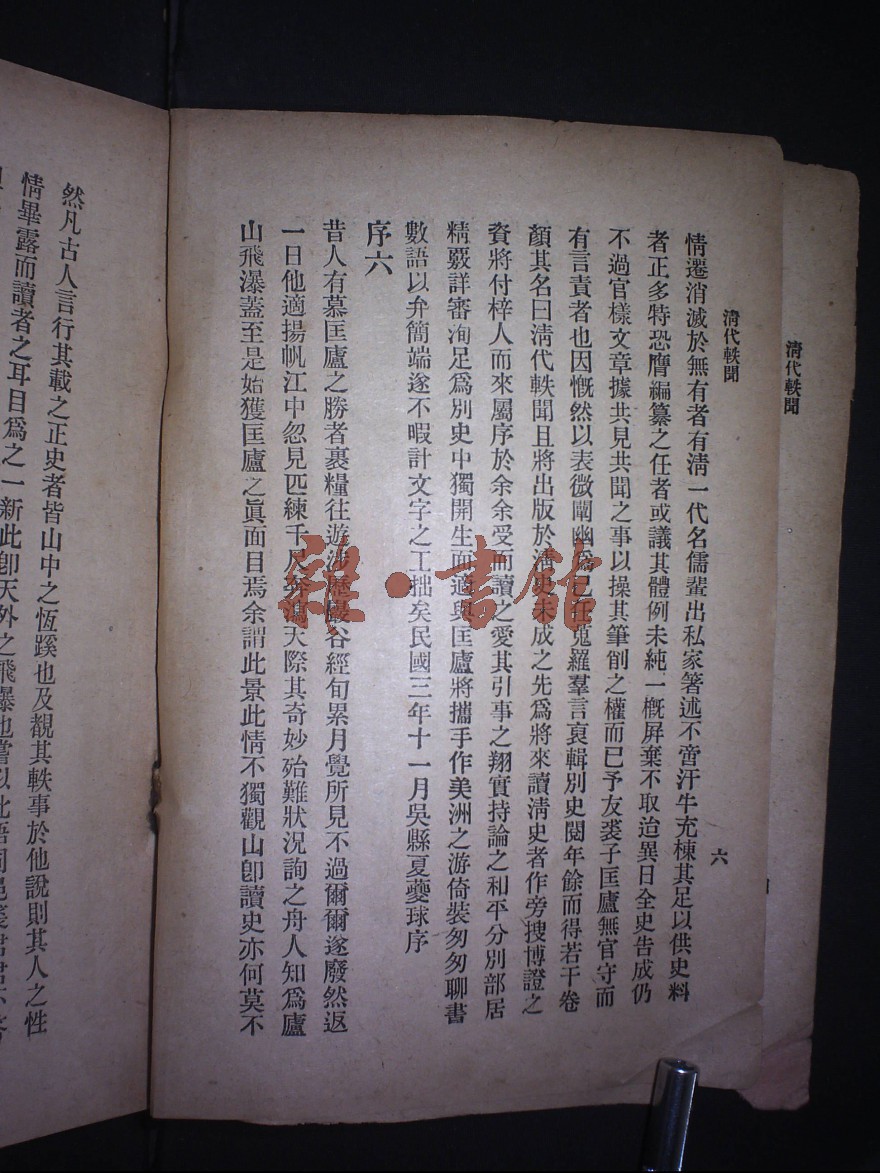 清代軼聞
清代軼聞
六
情遷消滅於無有者有淸一代名儒輩出私家箸述不啻汗牛充棟其足以供史料
者正多特恐膺編纂之任者或議其體例未純一槪屛棄不取迨異日全史告成仍
不過官樣文章據共見共聞之事以操其筆削之權而已予友裘子匡廬無官守而
有言責者也因慨然以表微闡幽爲已任蒐羅羣言裒輯別史閱年餘而得若干卷
顏其名曰淸代軼聞且將出版於淸史未成之先爲將來讀淸史者作旁搜博證之
資將付梓人而來屬序於余余受而讀之愛其引事之翔實持論之和平分別部居
精覈詳審洵足爲別史中獨開生面適與匡廬將攜手作美洲之游倚裝匆匆聊書
數語以弁簡端遂不暇計文字之工拙矣民國三年十一月吳縣夏蘷球序
序六
昔人有慕匡廬之勝者裹糧往遊涉歷巖谷經旬累月覺所見不過爾爾遂廢然返
一日他適揚帆江中忽見匹練千尺奔瀉天際其奇妙殆難狀況詢之舟人知爲廬
山飛瀑蓋至是始獲匡廬之眞面目焉余謂此景此情不獨觀山卽讀史亦何莫不
然凡古人言行其載之正史者皆山中之恆蹊也及覩其軼事於他說則其人之性
情畢露而讀者之耳目爲之一新此卽天外之飛瀑也嘗以此語同邑裘君
雜·書館